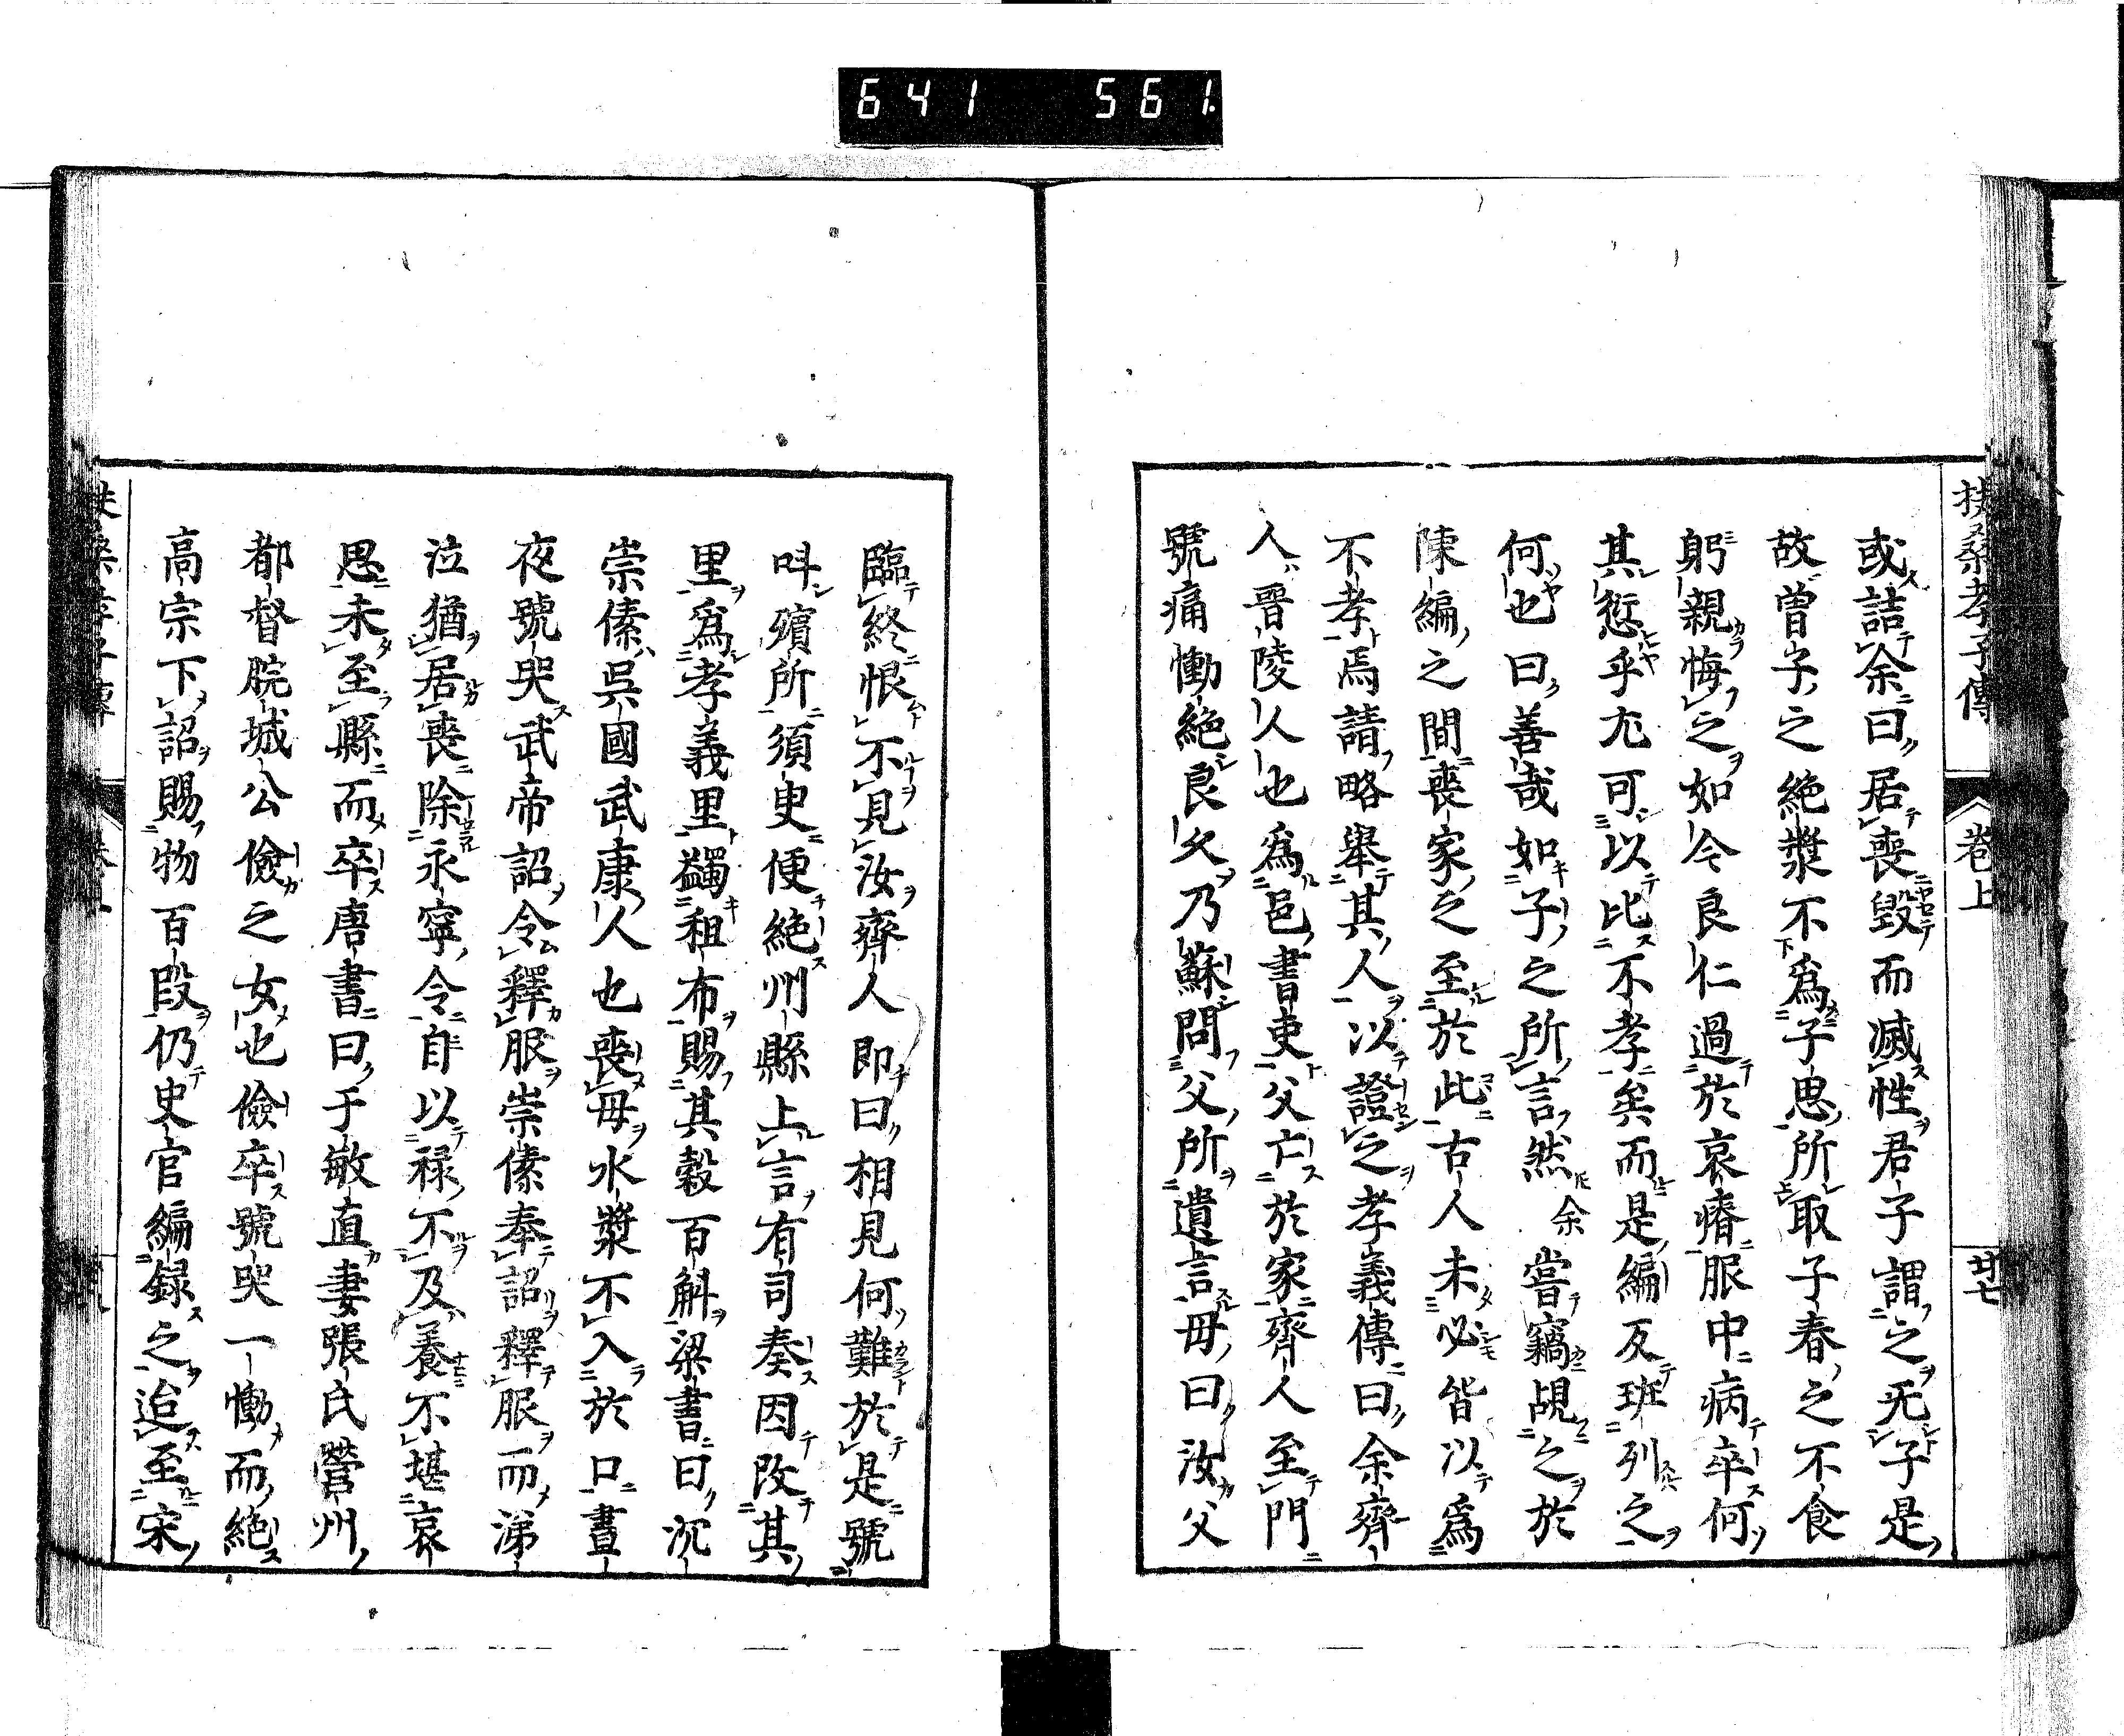 641 561
扶桑孝子傳 卷上 廿七
或詰余曰居喪毀而滅性君子謂之无子是
故曾子之絶漿不爲子思所取子春之不食
躬親悔之如今良仁過於哀瘠服中病卒何
其愆乎尢可以比不孝矣而是編反班列之
何也曰善哉如子之所言然余嘗竊覘之於
陳編之間喪家之至於此古人未必皆以爲
不孝焉請略舉其人以證之孝義傳曰余齊
人晋陵人也爲邑書吏父亡於家齊人至門
號痛慟絶良久乃蘇問父所遺言母曰汝父
臨終恨不見汝齊人即曰相見何難於是號
呌殯所須臾便絶州縣上言有司奏因改其
里爲孝義里蠲租布賜其穀百斛梁書曰沉
崇傃呉國武康人也喪母水漿不入於口晝
夜號哭武帝詔令釋服崇傃奉詔釋服而涕
泣猶居喪除永寧令自以禄不及養不堪哀
思未至縣而卒唐書曰于敏直妻張氏營州
都督脘城公儉之女也儉卒號哭一慟而絶
高宗下詔賜物百段仍史官編録之迨至宋